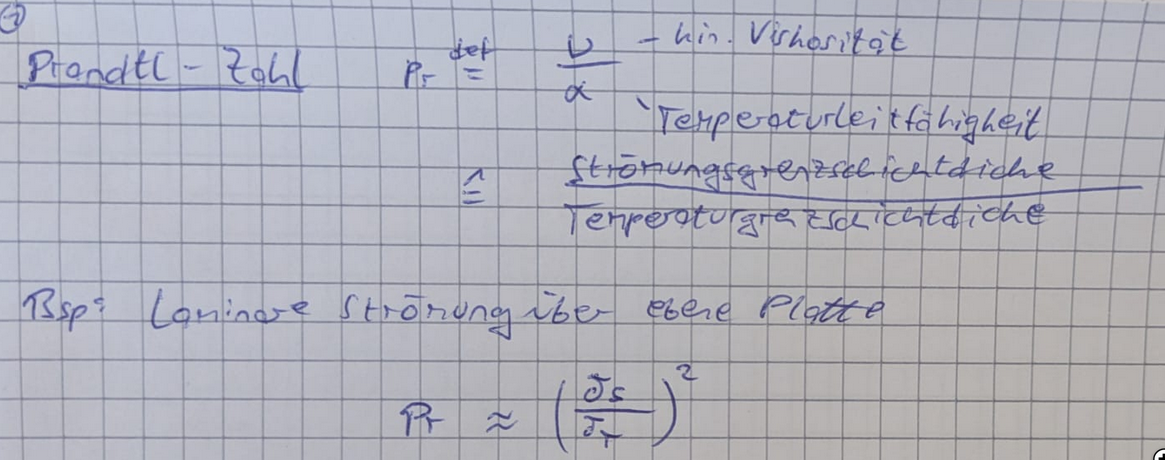 Prandtl-Zahl Pr def= ν/α - kin. Viskosität
Temperaturleitfähigkeit
≙ Strömungsgrenzschichtdicke
Temperaturgrezschichtdicke
Bsp: Laminare Strömung über ebene Platte
Pr ≈ (δs/δT)²